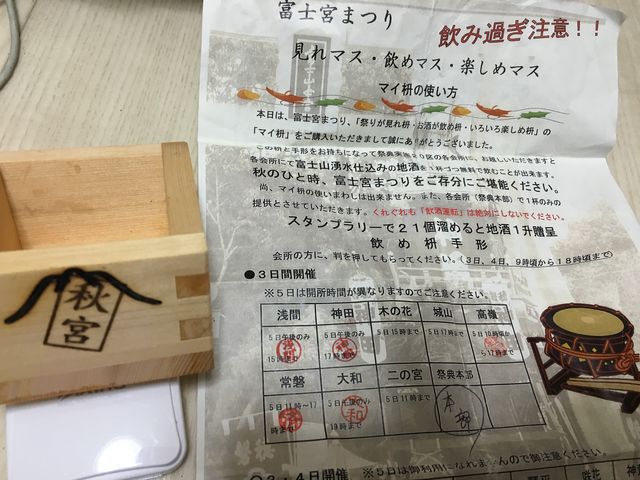 富士宮まつり
飲み過ぎ注意!!
見れマス・飲めマス・楽しめマス
マイ枡の使い方
本日は、富士宮まつり、「祭りが見れ枡・お酒が飲め枡・いろいろ楽しめ枡」の
「マイ枡」をご購入いただきまして誠にありがとうございました。
この枡と手形をお持ちになって祭典実施20区の各会所に、お越しいただきますと
各会所にて富士山湧水仕込みの地酒を1杯づつ無料で飲むことが出来ます。
秋のひと時、富士宮まつりをご存分にご堪能ください。
尚、マイ枡の使いまわしは出来ません。また、各会所(祭典本部)で1杯のみの
提供とさせていただきます。くれぐれも「飲酒運転」は絶対にしないでください。
スタンプラリーで21個溜めると地酒1升贈呈
飲め枡手形
会所の方に、判を押してもらってください。(3日、4日、9時頃から18時頃まで)
●3日間開催
※5日は開所時間が異なりますのでご注意ください。
浅間 神田 木の花 城山 高嶺
5日午後のみ 15時まで 5日午後のみ 17時まで 5日15時まで 5日17時まで 5日10時頃から17時まで
常磐 大和 二の宮 祭典本部
5日11時~17時まで 5日午後のみ 19時まで 5日11時まで 本部
・4日開催 ※5日は御利用になれませんので御注意ください。
咲花
秋
宮